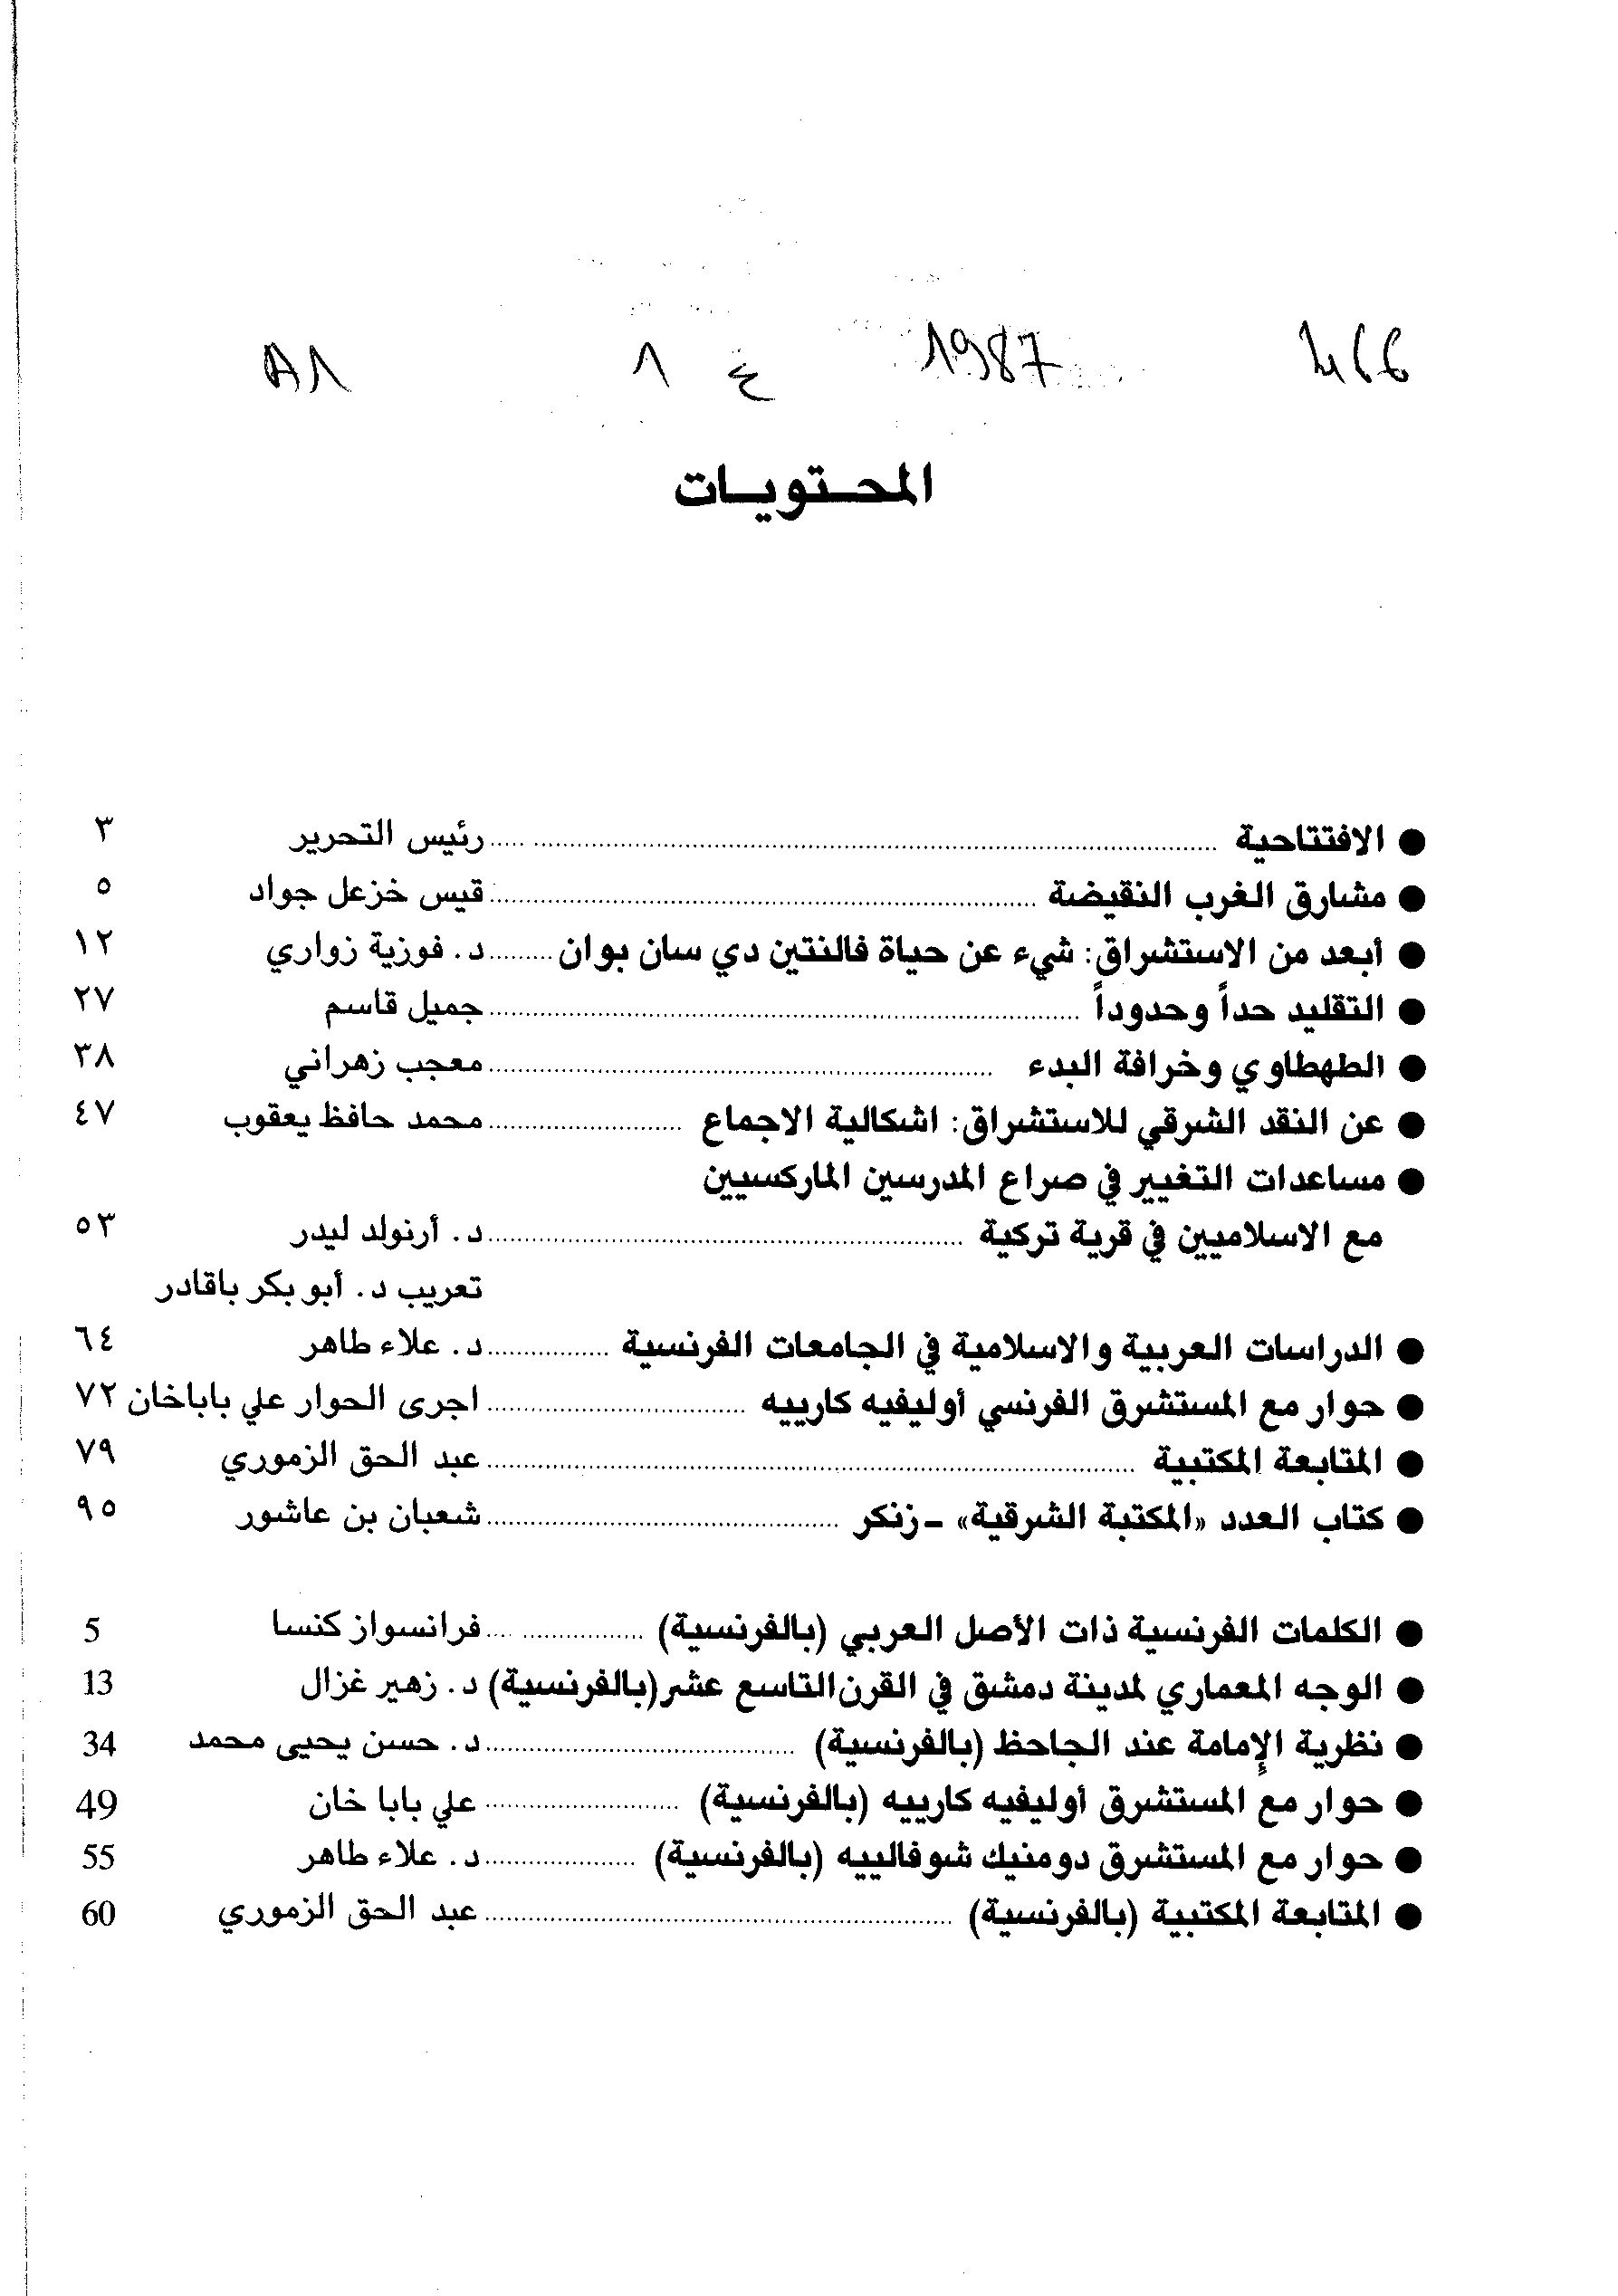 1987 ع ١
المحتويات
● الافتتاحية ........ رئيس التحرير ٣
● مشارق الغرب النقيضة ........ قيس خزعل جواد ٥
● أبعد من الاستشراق: شيء عن حياة فالنتين دي سان بوان ........ د. فوزية زواري ١٢
● التقليد حداً وحدوداً ........ جميل قاسم ٢٧
● الطهطاوي وخرافة البدء ........ معجب زهراني ٣٨
● عن النقد الشرقي للاستشراق: اشكالية الاجماع ........ محمد حافظ يعقوب ٤٧
● مساعدات التغيير في صراع المدرسين الماركسيين
مع الاسلاميين في قرية تركية ........ د. أرنولد ليدر ٥٣
تعريب د. أبو بكر باقادر
● الدراسات العربية والاسلامية في الجامعات الفرنسية ........ د. علاء طاهر ٦٤
● حوار مع المستشرق الفرنسي أوليفيه كارييه ........ اجرى الحوار علي باباخان ٧٢
● المتابعة المكتبية ........ عبد الحق الزموري ٧٩
● كتاب العدد «المكتبة الشرقية» - زنكر ........ شعبان بن عاشور ٩٥
● الكلمات الفرنسية ذات الأصل العربي (بالفرنسية) ........ فرانسواز كنسا 5
● الوجه المعماري لمدينة دمشق في القرن التاسع عشر (بالفرنسية) د. زهير غزال 13
● نظرية الإمامة عند الجاحظ (بالفرنسية) ........ د. حسن يحيى محمد 34
● حوار مع المستشرق أوليفيه كارييه (بالفرنسية) ........ علي بابا خان 49
● حوار مع المستشرق دومنيك شوفالييه (بالفرنسية) ........ د. علاء طاهر 55
● المتابعة المكتبية (بالفرنسية) ........ عبد الحق الزموري 60